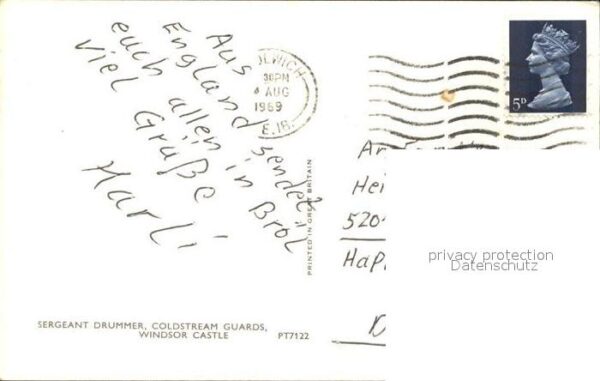 Aus
England sendet
euch allen in Bröl
viel Grüße
Harli
38PM
AUG
1969
5D
PRINTED IN GREAT BRITAIN
Hei
520
Hap
privacy protection
Datenschutz
SERGEANT DRUMMER, COLDSTREAM GUARDS,
WINDSOR CASTLE PT7122